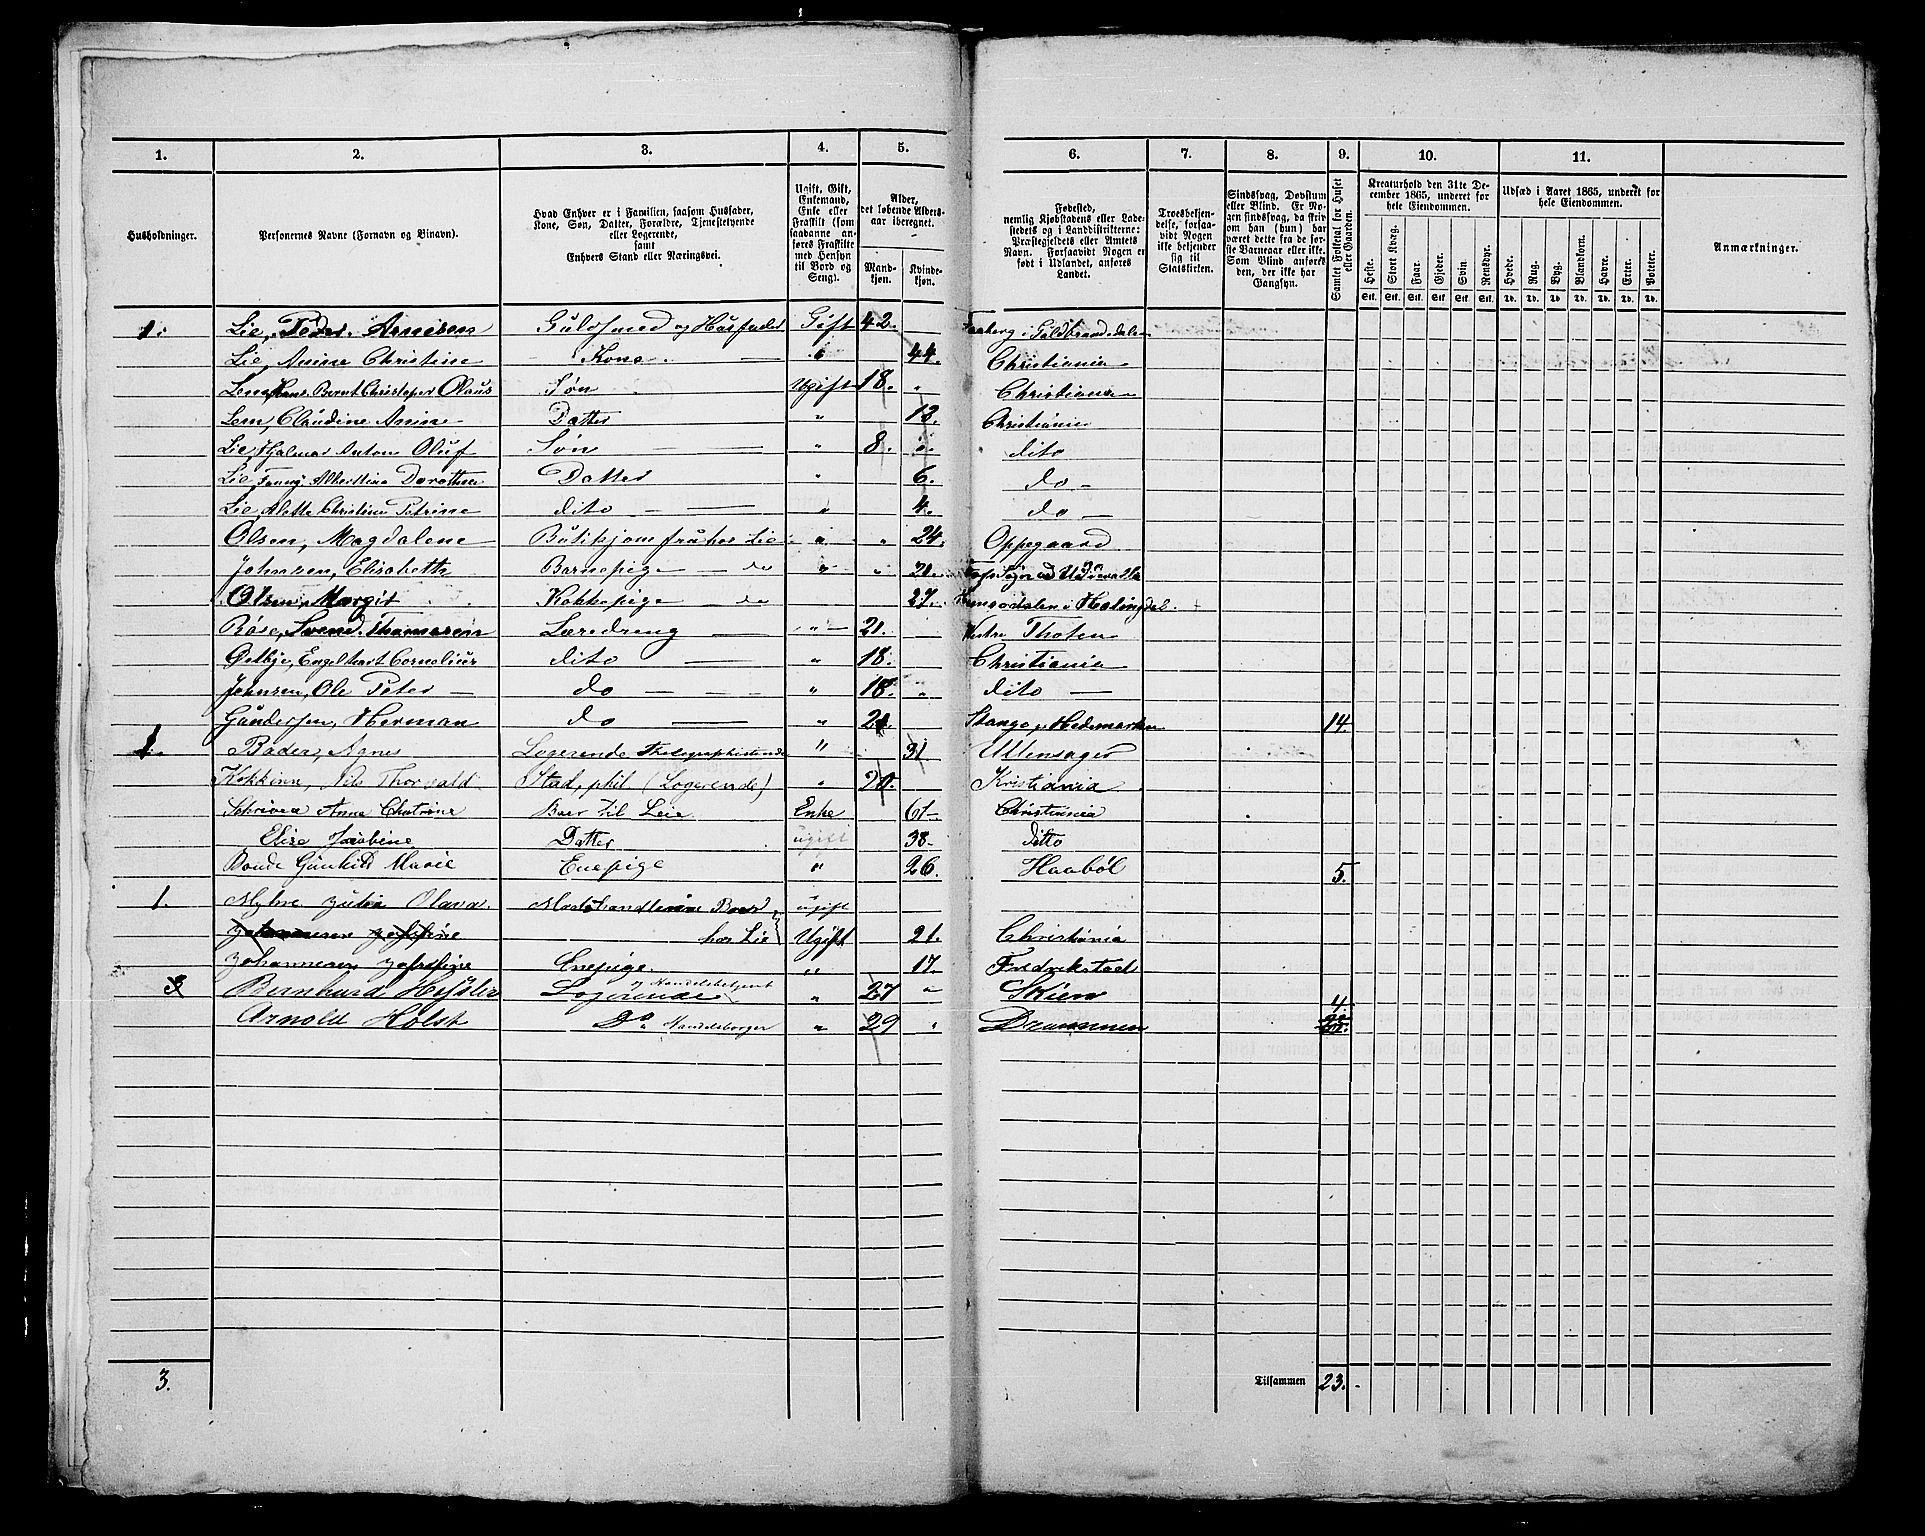 1. 2. 3. 4. 5. 6. 7. 8. 9. 10. 11.
Husholdninger.
Personernes Navne (Fornavn og Binavn).
Hvad Enhver er i Familien, saasom Husfader, Kone, Søn, Datter, Forældre, Tjenestetyende eller Logerende, samt Enhvers Stand eller Næringsvei.
Ugift, Gift, Enkemand, Enke eller Fraskilt (som saadanne anføres Fraskilte med Hensyn til Bord og Seng).
Alder, det løbende Alders- aar iberegnet.
Mand- kjøn. Kvinde- kjøn.
Fødested, nemlig Kjøbstadens eller Lade- stedets og i Landdistrikterne: Præstegjeldets eller Amtets Navn. Forsaavidt Nogen er født i Udlandet, anføres Landet.
Troesbekjen- delse, forsaa- vidt Nogen ikke bekjender sig til Statskirken.
Sindssvag, Døvstum eller Blind. Er No- gen sindssvag, da skriv om han (hun) har været dette fra de før- ste Barneaar eller ikke. Som Blind anføres den, der ikke har Gangsyn.
Samlet Folketal for Huset eller Gaarden.
Kreaturhold den 31te De- cember 1865, underet for hele Eiendommen.
Heste. Stort Kvæg. Faar. Gjeder. Svin. Rensdyr.
Stk. Stk. Stk. Stk. Stk. Stk.
Udsæd i Aaret 1865, underet for hele Eiendommen.
Hvede. Rug. Byg. Blandkorn. Havre. Erter. Poteter.
Td. Td. Td. Td. Td. Td. Td.
Anmærkninger.
1. Lie, Peder Arnesen Guldsmed og Husfader Gift 42. Faaberg i Guldbrandsdalen
Lie, Anine Christine Kone. " 44. Christiania
Lem, Hans Bernt Christopher Olaus Søn Ugift 18. " Christiania
Lem, Claudine Anine Datter " 13. Christiania
Lie, Hjalmar Anton Oluf Søn " 8. " dito
Lie, Fanny Albertina Dorothea Datter " 6. do
Lie, Alette Christine Petrine dito " 4. do
Olsen, Magdalene Butikjomfru hos Lie " " 24. Oppegaard
Johnsen, Elisabeth Barnepige do " " 21.
Olsen, Margit Kokkepige do 27. Hemsedalen i Halingdal.
Svend Thomesen Læredreng " 21. Vestre Thoten
Østbye, Engelhart Cornelius dito " 18. Christiania
Jensen, Ole Peter do " 18. " dito
Gundersen, Herman do " 21. Stange p. Hedemarken 14.
1. Bader, Agnes Logerende Thelegraphistinde " 31. Ullensager
Nils Thorvald Stud, phil (Logerende) " 20. Kristiania
Schriver Anne Chatrine Boer til Leie. Enke 61 Christiania
Elise Jacobine Datter ugift 38. ditto
Bonde Gunhild Marie Enepige " 26. Haabøl 5.
1. Myhre Julie Olava. Modehandlerinde Boer ugift
Johannesen Josefine hos Lie Ugift 21. Christiania
Johannesen Josefine Enepige. " 17. Fredrikstad
3 Bernhard Logerende og Handelsbetjent " 27 " Skien 4.
Arnold Holst Do Handelsborger " 29 " Drammen
3. Tilsammen 23.